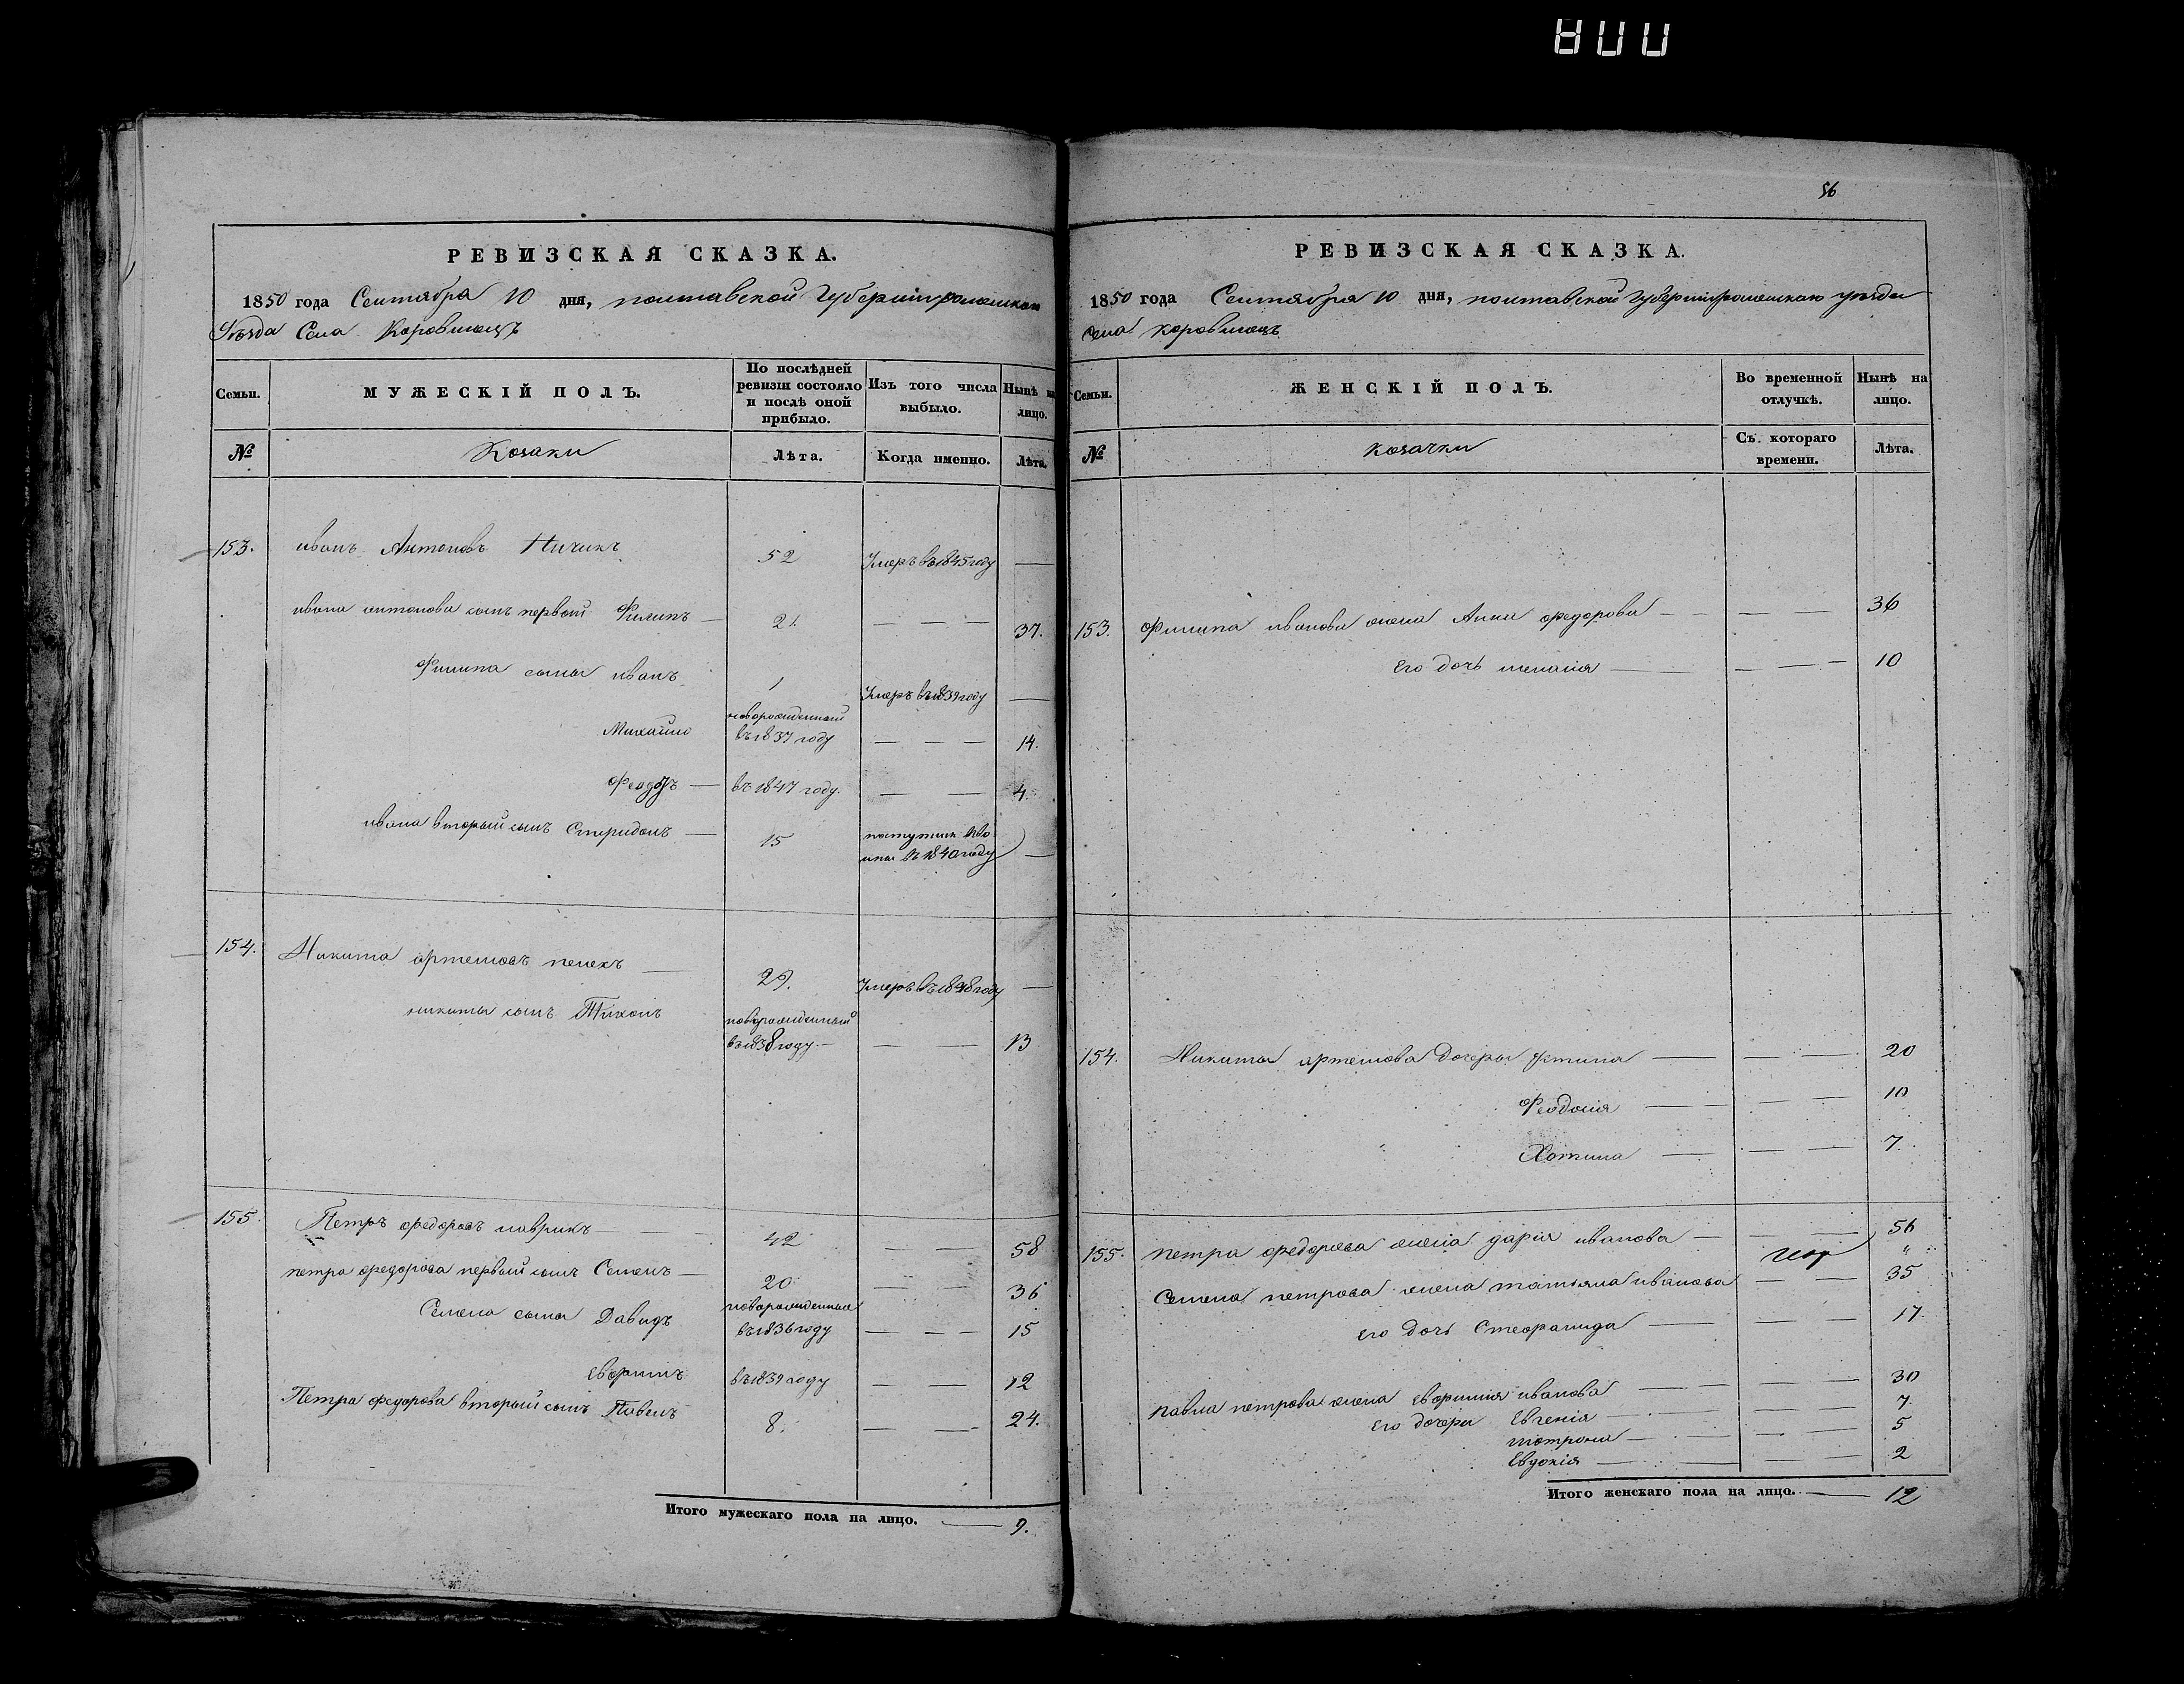 56
РЕВИЗСКАЯ СКАЗКА.
1850 года Сентября 10 дня, полтавской Губерніи роменскаго
Уезда Села Коровинецъ
Семьи.
МУЖЕСКІЙ ПОЛЪ.
По послѣдней ревизіи состояло и послѣ оной прибыло.
Изъ того числа выбыло.
Нынѣ на лицо.
№
Козаки
Лѣта.
Когда именно.
Лѣта.
153. иванъ Антоновъ 52 Умеръ въ 1845 году —
ивана антонова сынъ первый Филипъ — 21. — — — 37.
Филипа сыны иванъ 1 Умеръ въ 1839 году —
Михайло новорожденный въ 1837 году — — — 14.
Федоръ — въ 1847 году. — — 4.
ивана вторый сынъ Спиридонъ — 15 въ 1840 году —
154. Никита артемовъ — 29. Умеръ въ 1848 году —
никиты сынъ Тихонъ новорожденный въ 1838 году — — — 13
155. Петръ федоровъ лаврикъ — 42 — — 58
петра федорова первый сынъ Семенъ — 20 — — 36
Семена сыны Давидъ новорожденные въ 1836 году — — — 15
Евфимъ въ 1839 году — — 12
Петра федорова вторый сынъ Павелъ 8. — — 24.
Итого мужескаго пола на лицо. — 9.
РЕВИЗСКАЯ СКАЗКА.
1850 года Сентября 10 дня, полтавской Губерніи роменскаго уезда
села коровинецъ
Семьи.
ЖЕНСКІЙ ПОЛЪ.
Во временной отлучкѣ.
Нынѣ на лицо.
№
козачки
Съ котораго времени.
Лѣта.
153. Филипа иванова жена Анна федорова — — — — 36
Его дочь меланія — — — — 10
154. Никиты артемова дочеры устина — — — 20
Феодосія — — — 10
Хотина — — — 7.
155. петра федорова жена дарія иванова — — — 56
Семена петрова жена татьяна иванова — — 35
Его дочь Стефанида — — — 17.
павла петрова жена Евфимія иванова — — — 30
Его дочери Евгенія — — — 7.
мотрона — — — 5
Евдокія — — — 2
Итого женскаго пола на лицо. — 12